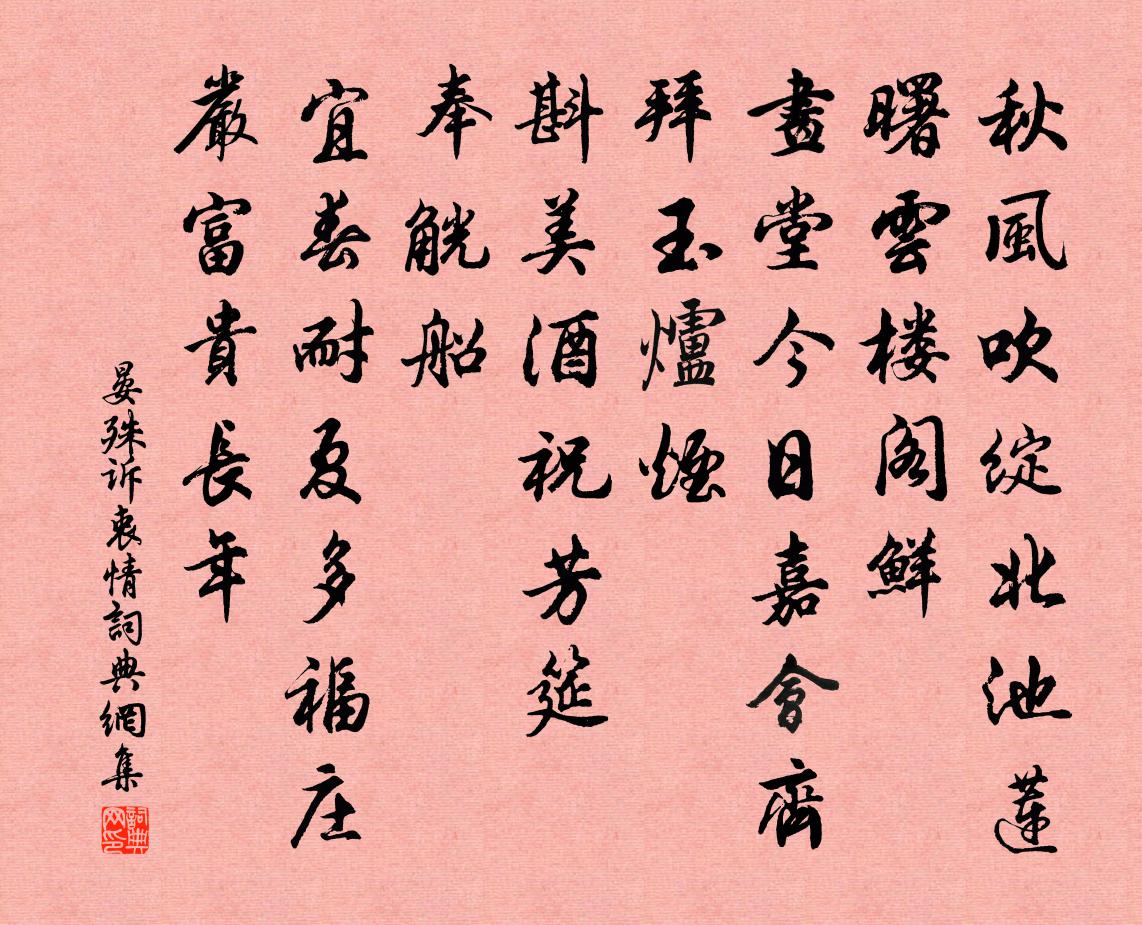 秋風吹綻北池蓮
曙雲樓閣鮮
畫堂今日嘉會齊
拜玉爐煙
斟美酒祝芳筵
奉觥船
宜春耐夏多福庄
嚴富貴長年
晏殊诉衷情詞典網集
詞典网印